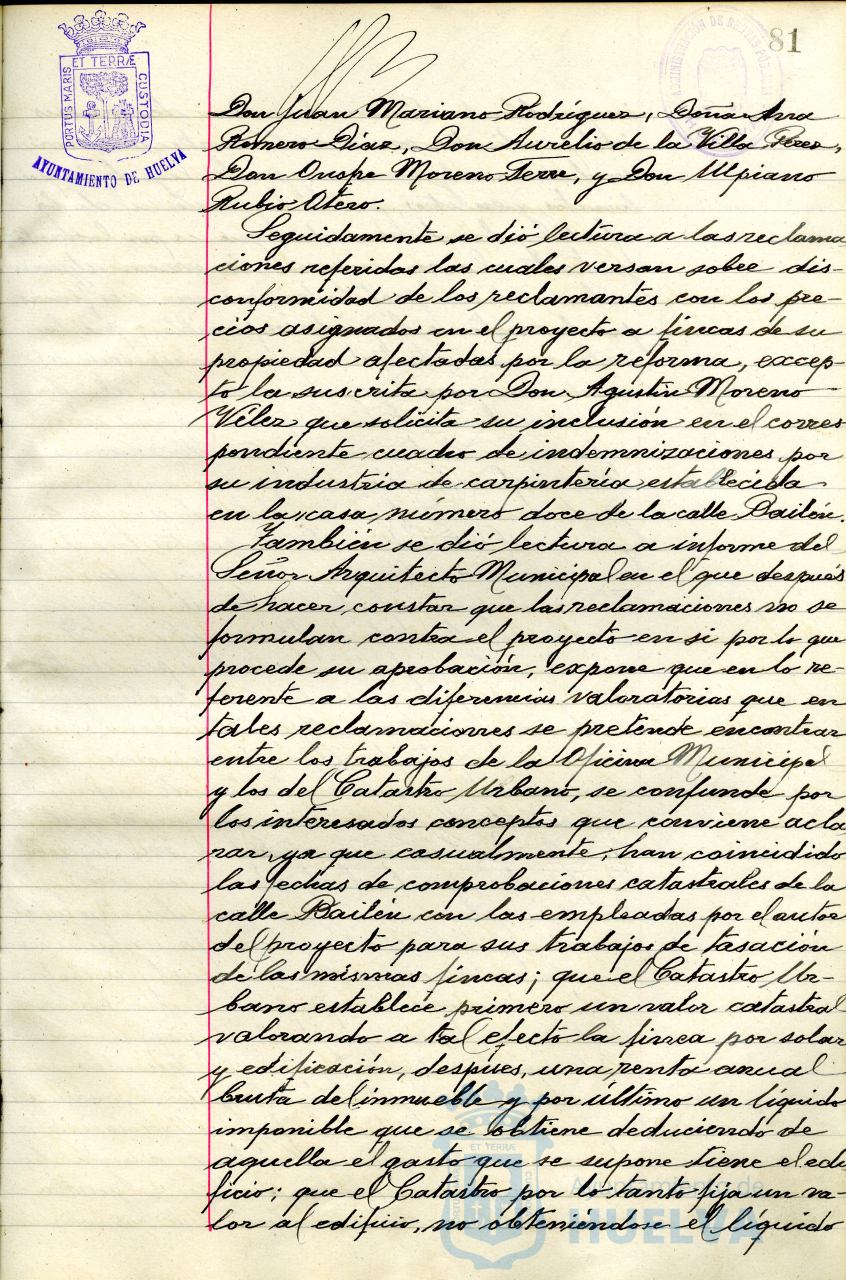 81
PORTUS MARIS ET TERRÆ CUSTODIA
AYUNTAMIENTO DE HUELVA
Don Juan Mariano Rodríguez, Doña Ana
Romero Díaz, Don Aurelio de la Villa Perez,
Don Onofre Moreno Terre, y Don Ulpiano
Rubio Otero.
Seguidamente se dió lectura a las reclama
ciones referidas las cuales versan sobre dis-
conformidad de los reclamantes con los pre-
cios asignados en el proyecto a fincas de su
propiedad afectadas por la reforma, excep-
to la suscrita por Don Agustin Moreno
Vélez que solicita su inclusión en el corres
pondiente cuadro de indemnizaciones por
su industria de carpintería establecida
en la casa número doce de la calle Bailén.
También se dió lectura a informe del
Señor Arquitecto Municipal en el que después
de hacer constar que las reclamaciones no se
formulan contra el proyecto en si por lo que
procede su aprobación, expone que en lo re-
ferente a las diferencias valoratorias que en
tales reclamaciones se pretende encontrar
entre los trabajos de la Oficina Municipal
y los del Catastro Urbano, se confunde por
los interesados conceptos que conviene acla
rar, ya que casualmente, han coincidido
las fechas de comprobaciones catastrales de la
calle Bailén con las empleadas por el autor
del proyecto para sus trabajos de tasación
de las mismas fincas; que el Catastro Ur-
bano establece primero un valor catastral
valorando a tal efecto la finca por solar
y edificación, despues, una renta anual
bruta del inmueble y por último un líquido
imponible que se obtiene deduciendo de
aquella el gasto que se supone tiene el edi
ficio; que el Catastro por lo tanto fija un va-
lor al edificio, no obteniéndose el líquido
Ayuntamiento de
HUELVA